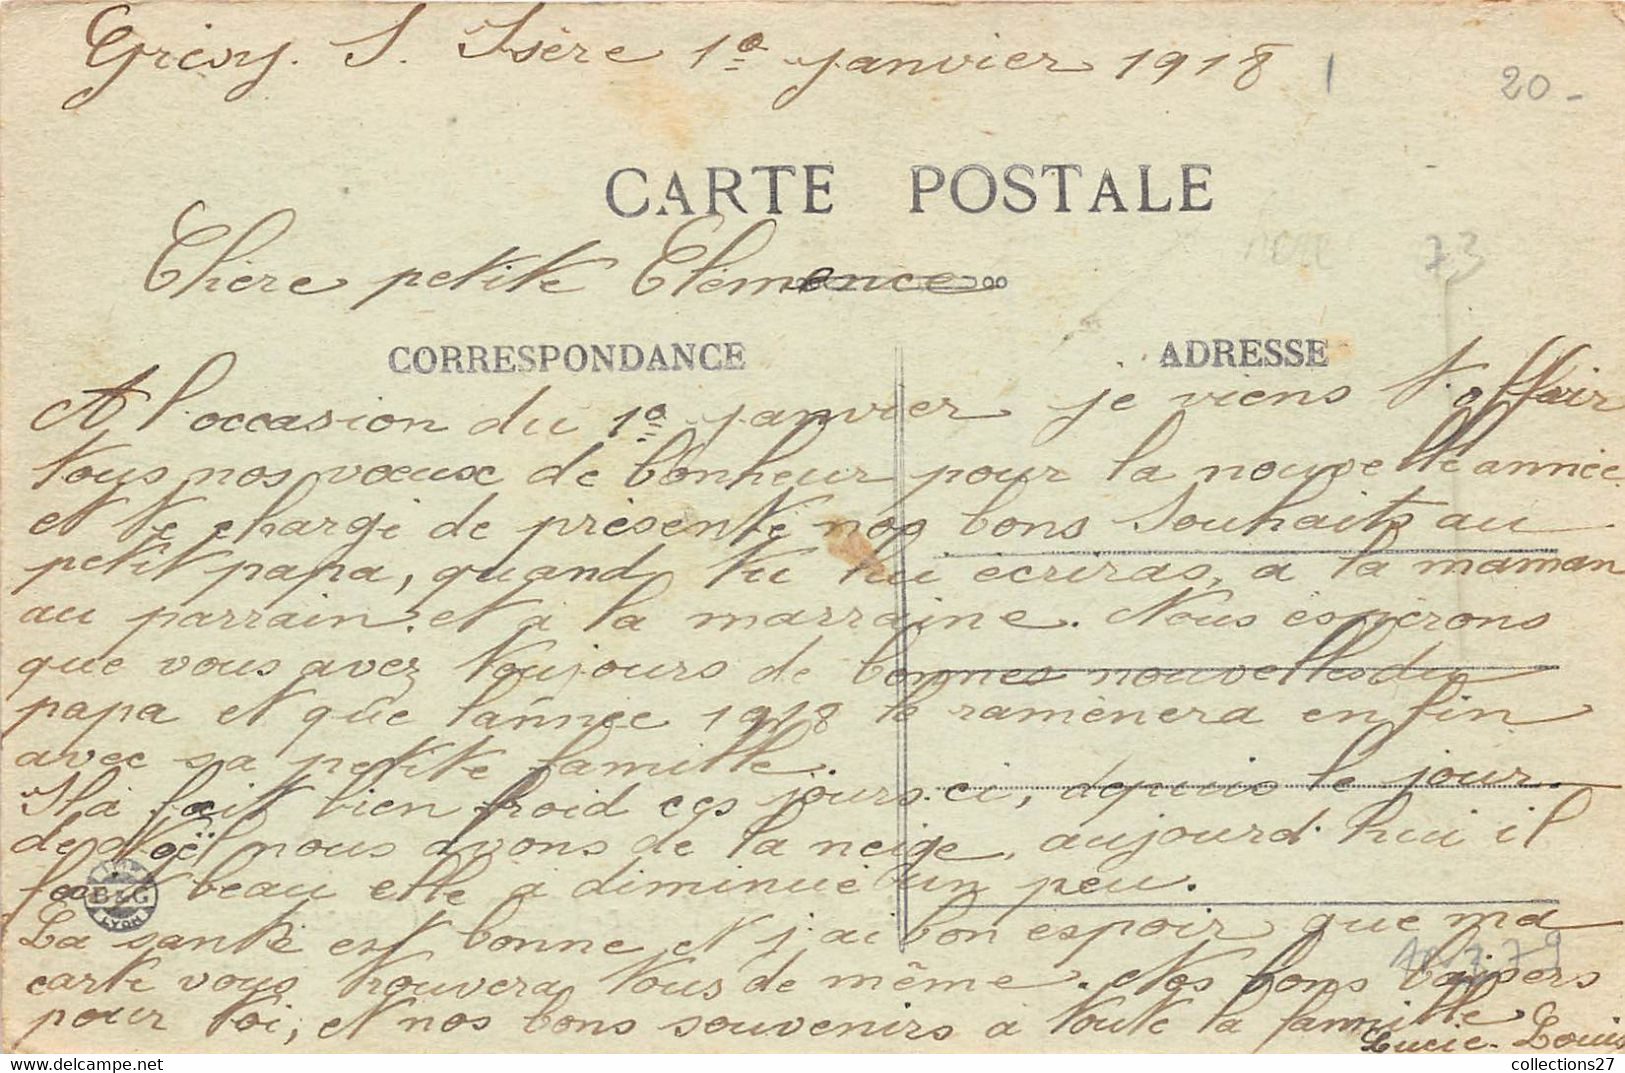 Grésy. S. Isère 1e janvier 1918
1
20-
CARTE POSTALE
73
Chère petite Clémence
CORRESPONDANCE
ADRESSE
A l'occasion du 1e janvier je viens t. offrir
tous nos vœux de bonheur pour la nouvelle année
et te chargé de présenté nos bons souhaits au
petit papa, quand tu lui écriras, a la maman
au parrain. et a la marraine. Nous espérons
que vous avez toujours de bonnes nouvelles du
papa et que l'année 1918 le ramènera enfin
avec sa petite famille.
Il a fait bien froid ces jours. ci, depuis le jour
de Noël nous avons de la neige, aujourd. hui il
beau elle a diminué un peu.
IMP B&G LYON
La santé est bonne et j'ai bon espoir que ma
carte vous trouvera tous de même. Nos bons baisers
pour toi, et nos bons souvenirs a toute la famille
Lucie. Louis
collections27